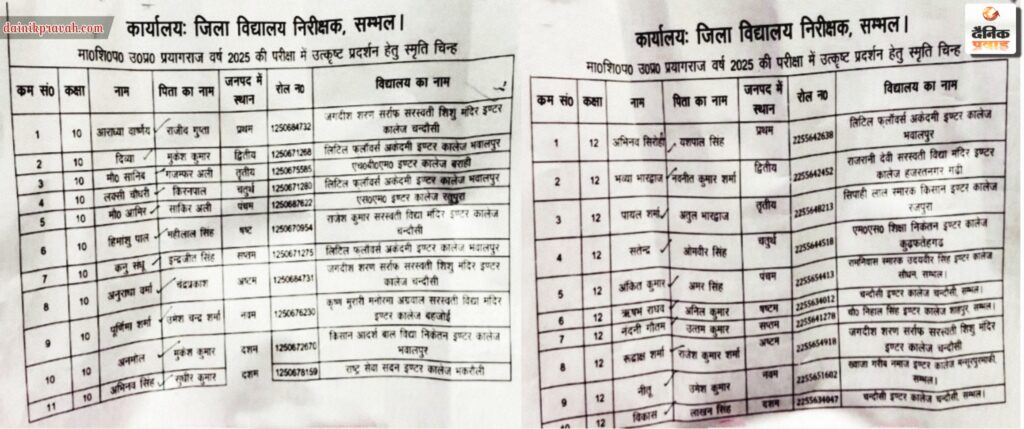 dainikpravah.com
कार्यालयः जिला विद्यालय निरीक्षक, सम्भल।
मा०शि०प० उ०प्र० प्रयागराज वर्ष 2025 की परीक्षा में उत्कृष्ट प्रदर्शन हेतु स्मृति चिन्ह
कम सं० कक्षा नाम पिता का नाम जनपद में स्थान रोल न० विद्यालय का नाम
1 10 आराध्या वार्ष्णेय राजीव गुप्ता प्रथम 1250684732 जगदीश शरण सर्राफ सरस्वती शिशु मंदिर इण्टर कालेज चन्दौसी
2 10 दिव्या मुकेश कुमार द्वितीय 1250671268 लिटिल फ्लॉवर्स अकेदमी इण्टर कालेज भवालपुर
3 10 मौ० सानिब गजम्फर अली तृतीय 1250675585 इण्टर कालेज बराही
4 10 लक्सी चौधरी किरनपाल चतुर्थ 1250671280 लिटिल फ्लॉवर्स अकेदमी इण्टर कालेज भवालपुर
5 10 मौ० आमिर साकिर अली पंचम 1250687622 एस०एम० इण्टर कालेज रतुपुरा
6 10 हिमांशु पाल महीलाल सिंह षष्ट 1250670954 राजेश कुमार सरस्वती विद्या मंदिर इण्टर कालेज चन्दौसी
7 10 कनु संधू इन्द्रजीत सिंह सप्तम 1250671275 लिटिल फ्लॉवर्स अकेदमी इण्टर कालेज भवालपुर
8 10 अनुराधा वर्मा चंद्रप्रकाश अष्टम 1250684731 जगदीश शरण सर्राफ सरस्वती शिशु मंदिर इण्टर कालेज चन्दौसी
9 10 पूर्णिमा शर्मा उमेश चन्द्र शर्मा नवम 1250676230 कृष्ण मुरारी मनोरमा अग्रवाल सरस्वती विद्या मंदिर इण्टर कालेज बहजोई
10 10 अनमोल मुकेश कुमार दशम 1250672670 किसान आदर्श बाल विद्या निकेतन इण्टर कालेज भवालपुर
11 10 अभिनव सिंह सुधीर कुमार दशम 1250678159 राष्ट्र सेवा सदन इण्टर कालेज भकरौली
दैनिक प्रवाह
कार्यालयः जिला विद्यालय निरीक्षक, सम्भल।
मा०शि०प० उ०प्र० प्रयागराज वर्ष 2025 की परीक्षा में उत्कृष्ट प्रदर्शन हेतु स्मृति चिन्ह
कम सं० कक्षा नाम पिता का नाम जनपद में स्थान रोल न० विद्यालय का नाम
1 12 अभिनव सिरोही यशपाल सिंह प्रथम 2255642638 लिटिल फ्लॉवर्स अकेदमी इण्टर कालेज भवालपुर
2 12 भव्या भारद्वाज नवनीत कुमार शर्मा द्वितीय 2255642452 राजरानी देवी सरस्वती विद्या मंदिर इण्टर कालेज हजरतनगर गढ़ी
3 12 पायल शर्मा अतुल भारद्वाज तृतीय 2255648213 सिपाही लाल स्मारक किसान इण्टर कालेज रजपुरा
4 12 सतेन्द्र ओमवीर सिंह चतुर्थ 2255644518 एम०एस० शिक्षा निकेतन इण्टर कालेज कुढ़फतेहगढ़
5 12 अंकित कुमार अमर सिंह पंचम 2255654413 रामनिवास स्मारक उदयवीर सिंह इण्टर कालेज सौंधन, सम्भल।
6 12 ऋषभ राघव अनिल कुमार षष्टम 2255634012 चन्दौसी इण्टर कालेज चन्दौसी, सम्भल।
7 12 नंदनी गौतम उत्तम कुमार सप्तम 2255641278 चौ० निहाल सिंह इण्टर कालेज शाहपुर सम्भल।
8 12 रूद्राक्ष शर्मा राजेश कुमार शर्मा अष्टम 2255654918 जगदीश शरण सर्राफ सरस्वती शिशु मंदिर इण्टर कालेज चन्दौसी
9 12 नीतू उमेश कुमार नवम 2255651602 ख्वाजा गरीब नमाज इण्टर कालेज सम्भल।
10 12 विकास लाखन सिंह दशम 2255634047 चन्दौसी इण्टर कालेज चन्दौसी, सम्भल।